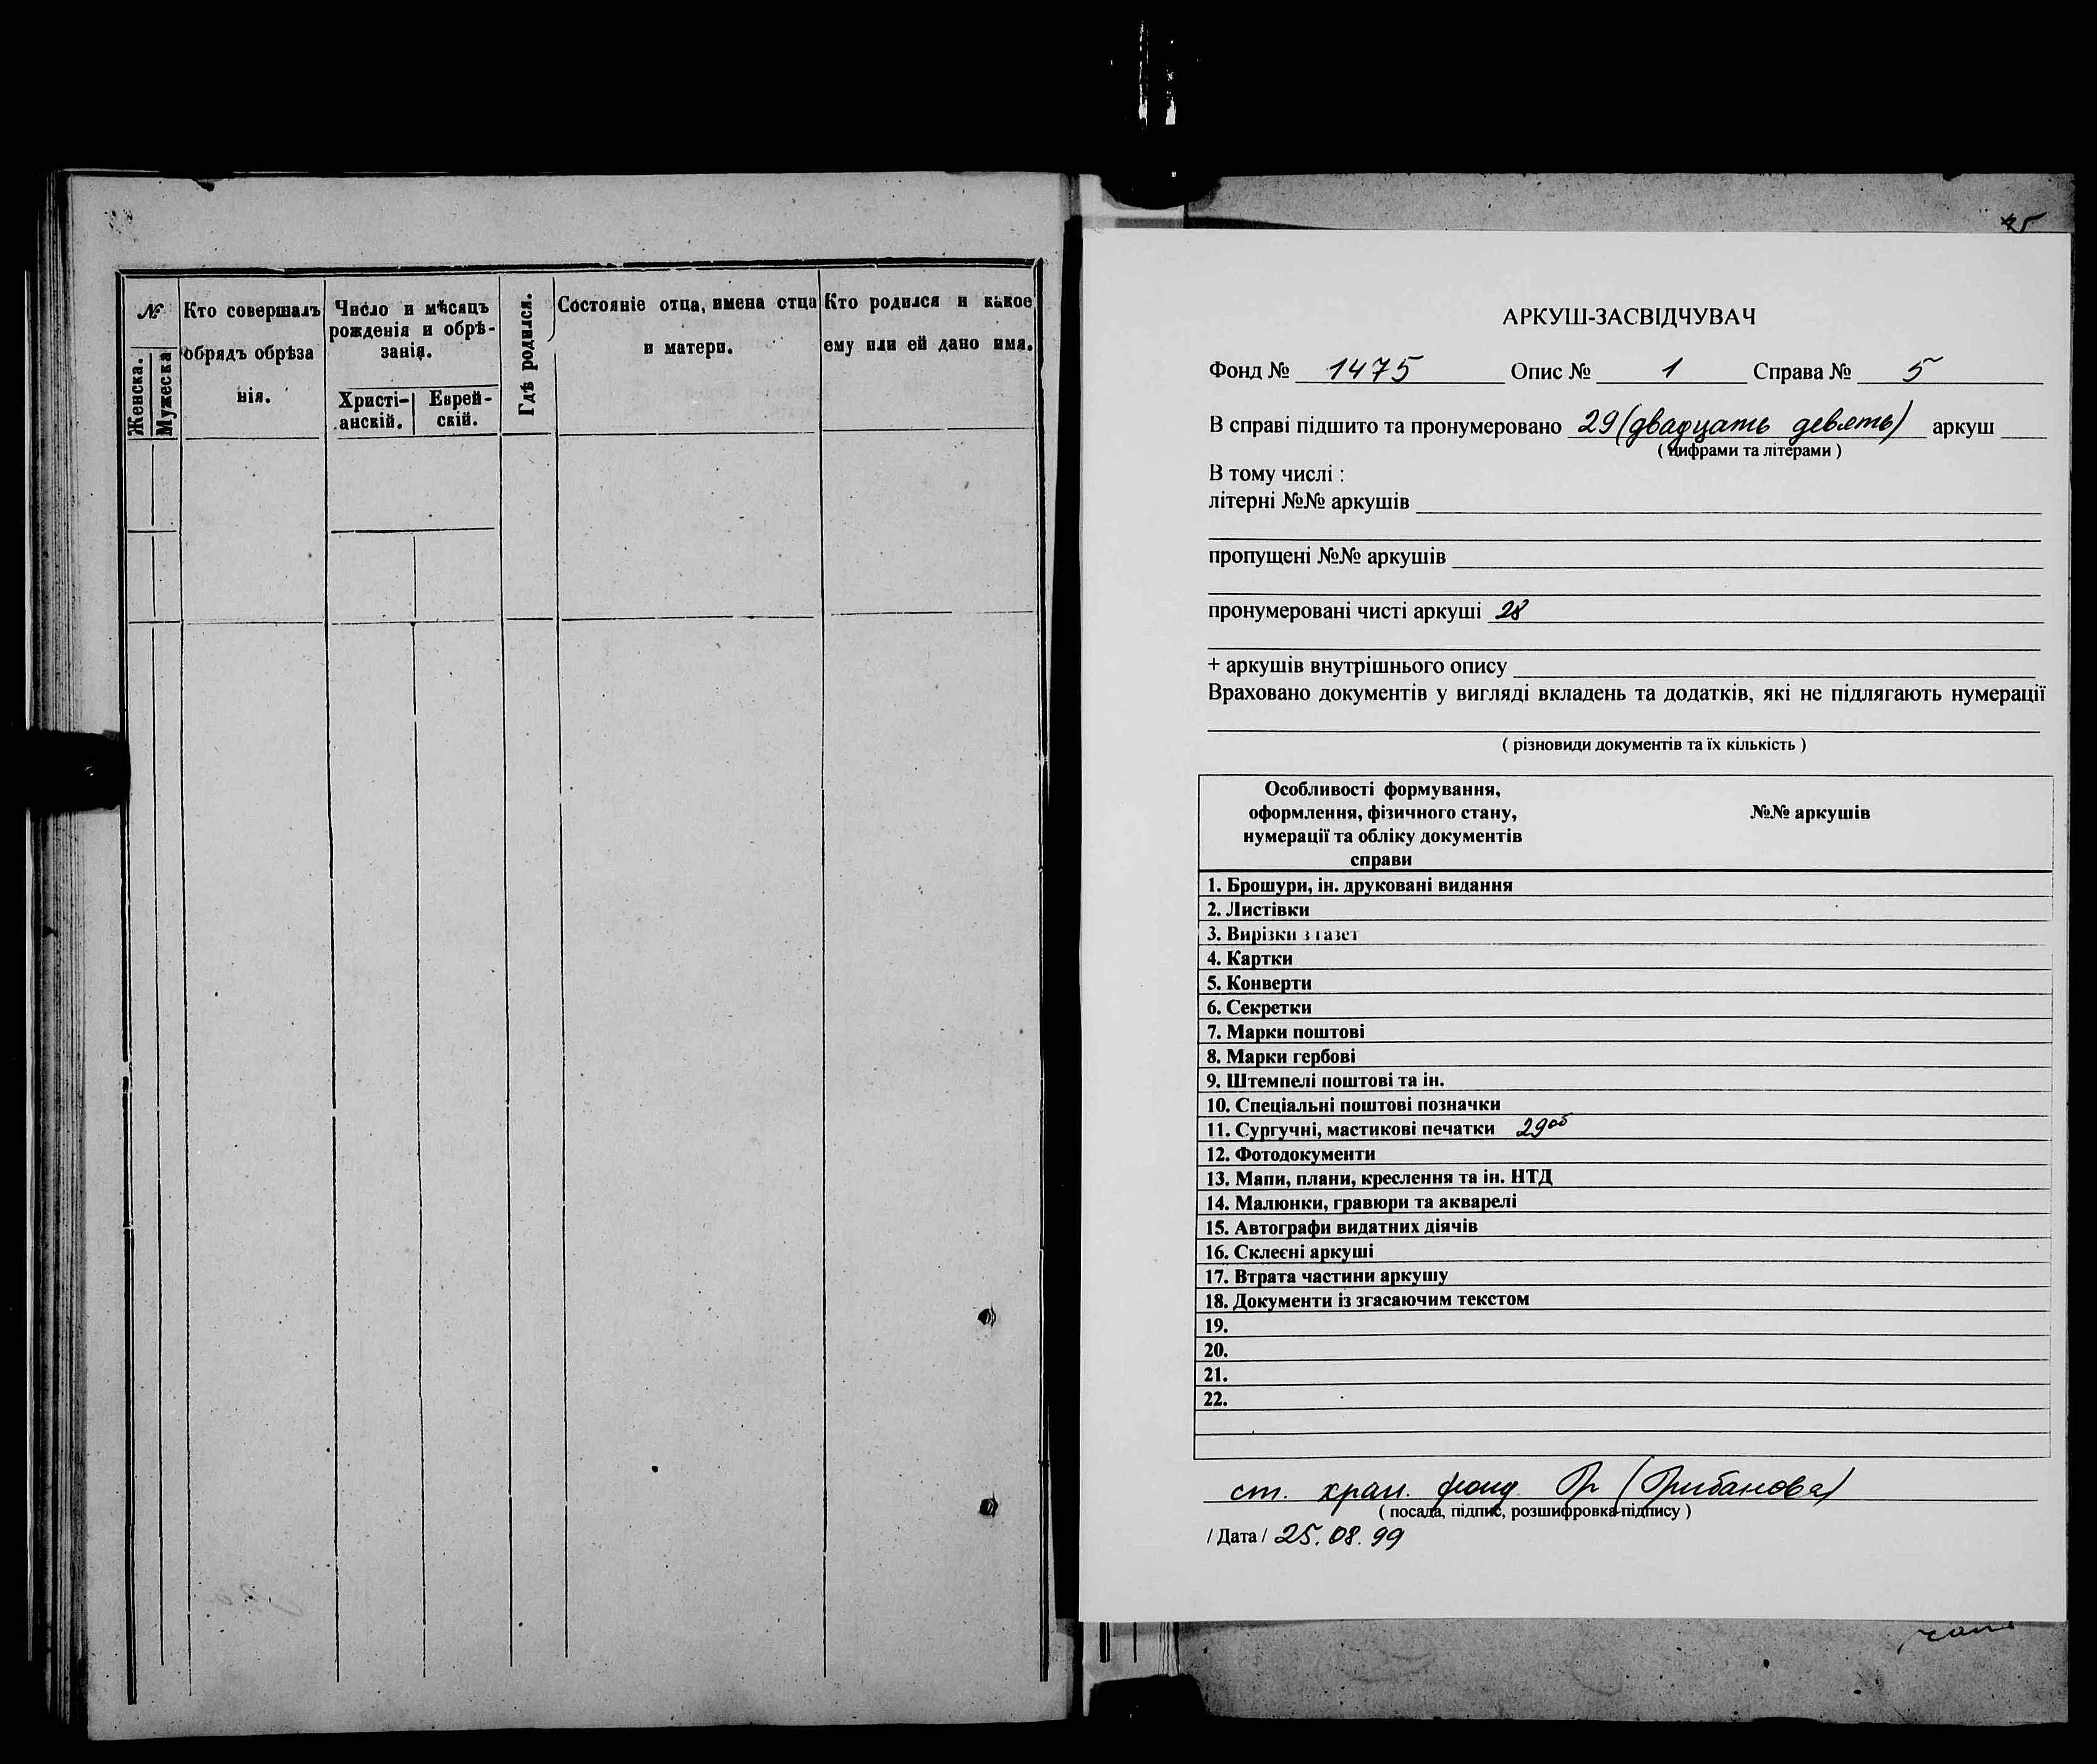 №
Женска.
Мужеска
Кто совершалъ
обрядъ обрѣза
нія.
Число и мѣсяцъ
рожденія и обрѣ-
занія.
Христі-
анскій.
Еврей-
скій.
Гдѣ родился.
Состояніе отца, имена отца
и матери.
Кто родился и какое
ему или ей дано имя.
АРКУШ-ЗАСВІДЧУВАЧ
Фонд № 1475 Опис № 1 Справа № 5
В справі підшито та пронумеровано 29 (двадцать девять) аркуш
( цифрами та літерами )
В тому числі :
літерні №№ аркушів
пропущені №№ аркушів
пронумеровані чисті аркуші 28
+ аркушів внутрішнього опису
Враховано документів у вигляді вкладень та додатків, які не підлягають нумерації
( різновиди документів та їх кількість )
Особливості формування,
оформлення, фізичного стану,
нумерації та обліку документів
справи
№№ аркушів
1. Брошури, ін. друковані видання
2. Листівки
3. Вирізки з газет
4. Картки
5. Конверти
6. Секретки
7. Марки поштові
8. Марки гербові
9. Штемпелі поштові та ін.
10. Спеціальні поштові позначки
11. Сургучні, мастикові печатки 29об
12. Фотодокументи
13. Мапи, плани, креслення та ін. НТД
14. Малюнки, гравюри та акварелі
15. Автографи видатних діячів
16. Склеєні аркуші
17. Втрата частини аркушу
18. Документи із згасаючим текстом
19.
20.
21.
22.
ст. хран. фонд. (Грибанова)
( посада, підпис, розшифровка підпису )
/ Дата / 25.08.99